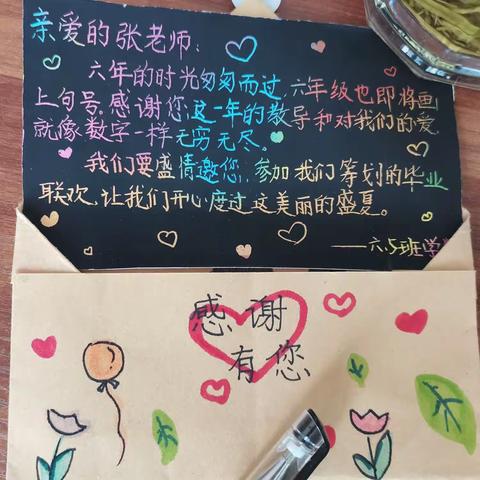 亲爱的张老师:
六年的时光匆匆而过,六年级也即将画
上句号,感谢您这一年的教导和对我们的爱,
就像数字一样无穷无尽。
我们要盛情邀您,参加我们筹划的毕业
联欢,让我们开心度过这美丽的盛夏。
——六.5班学
感谢
有您